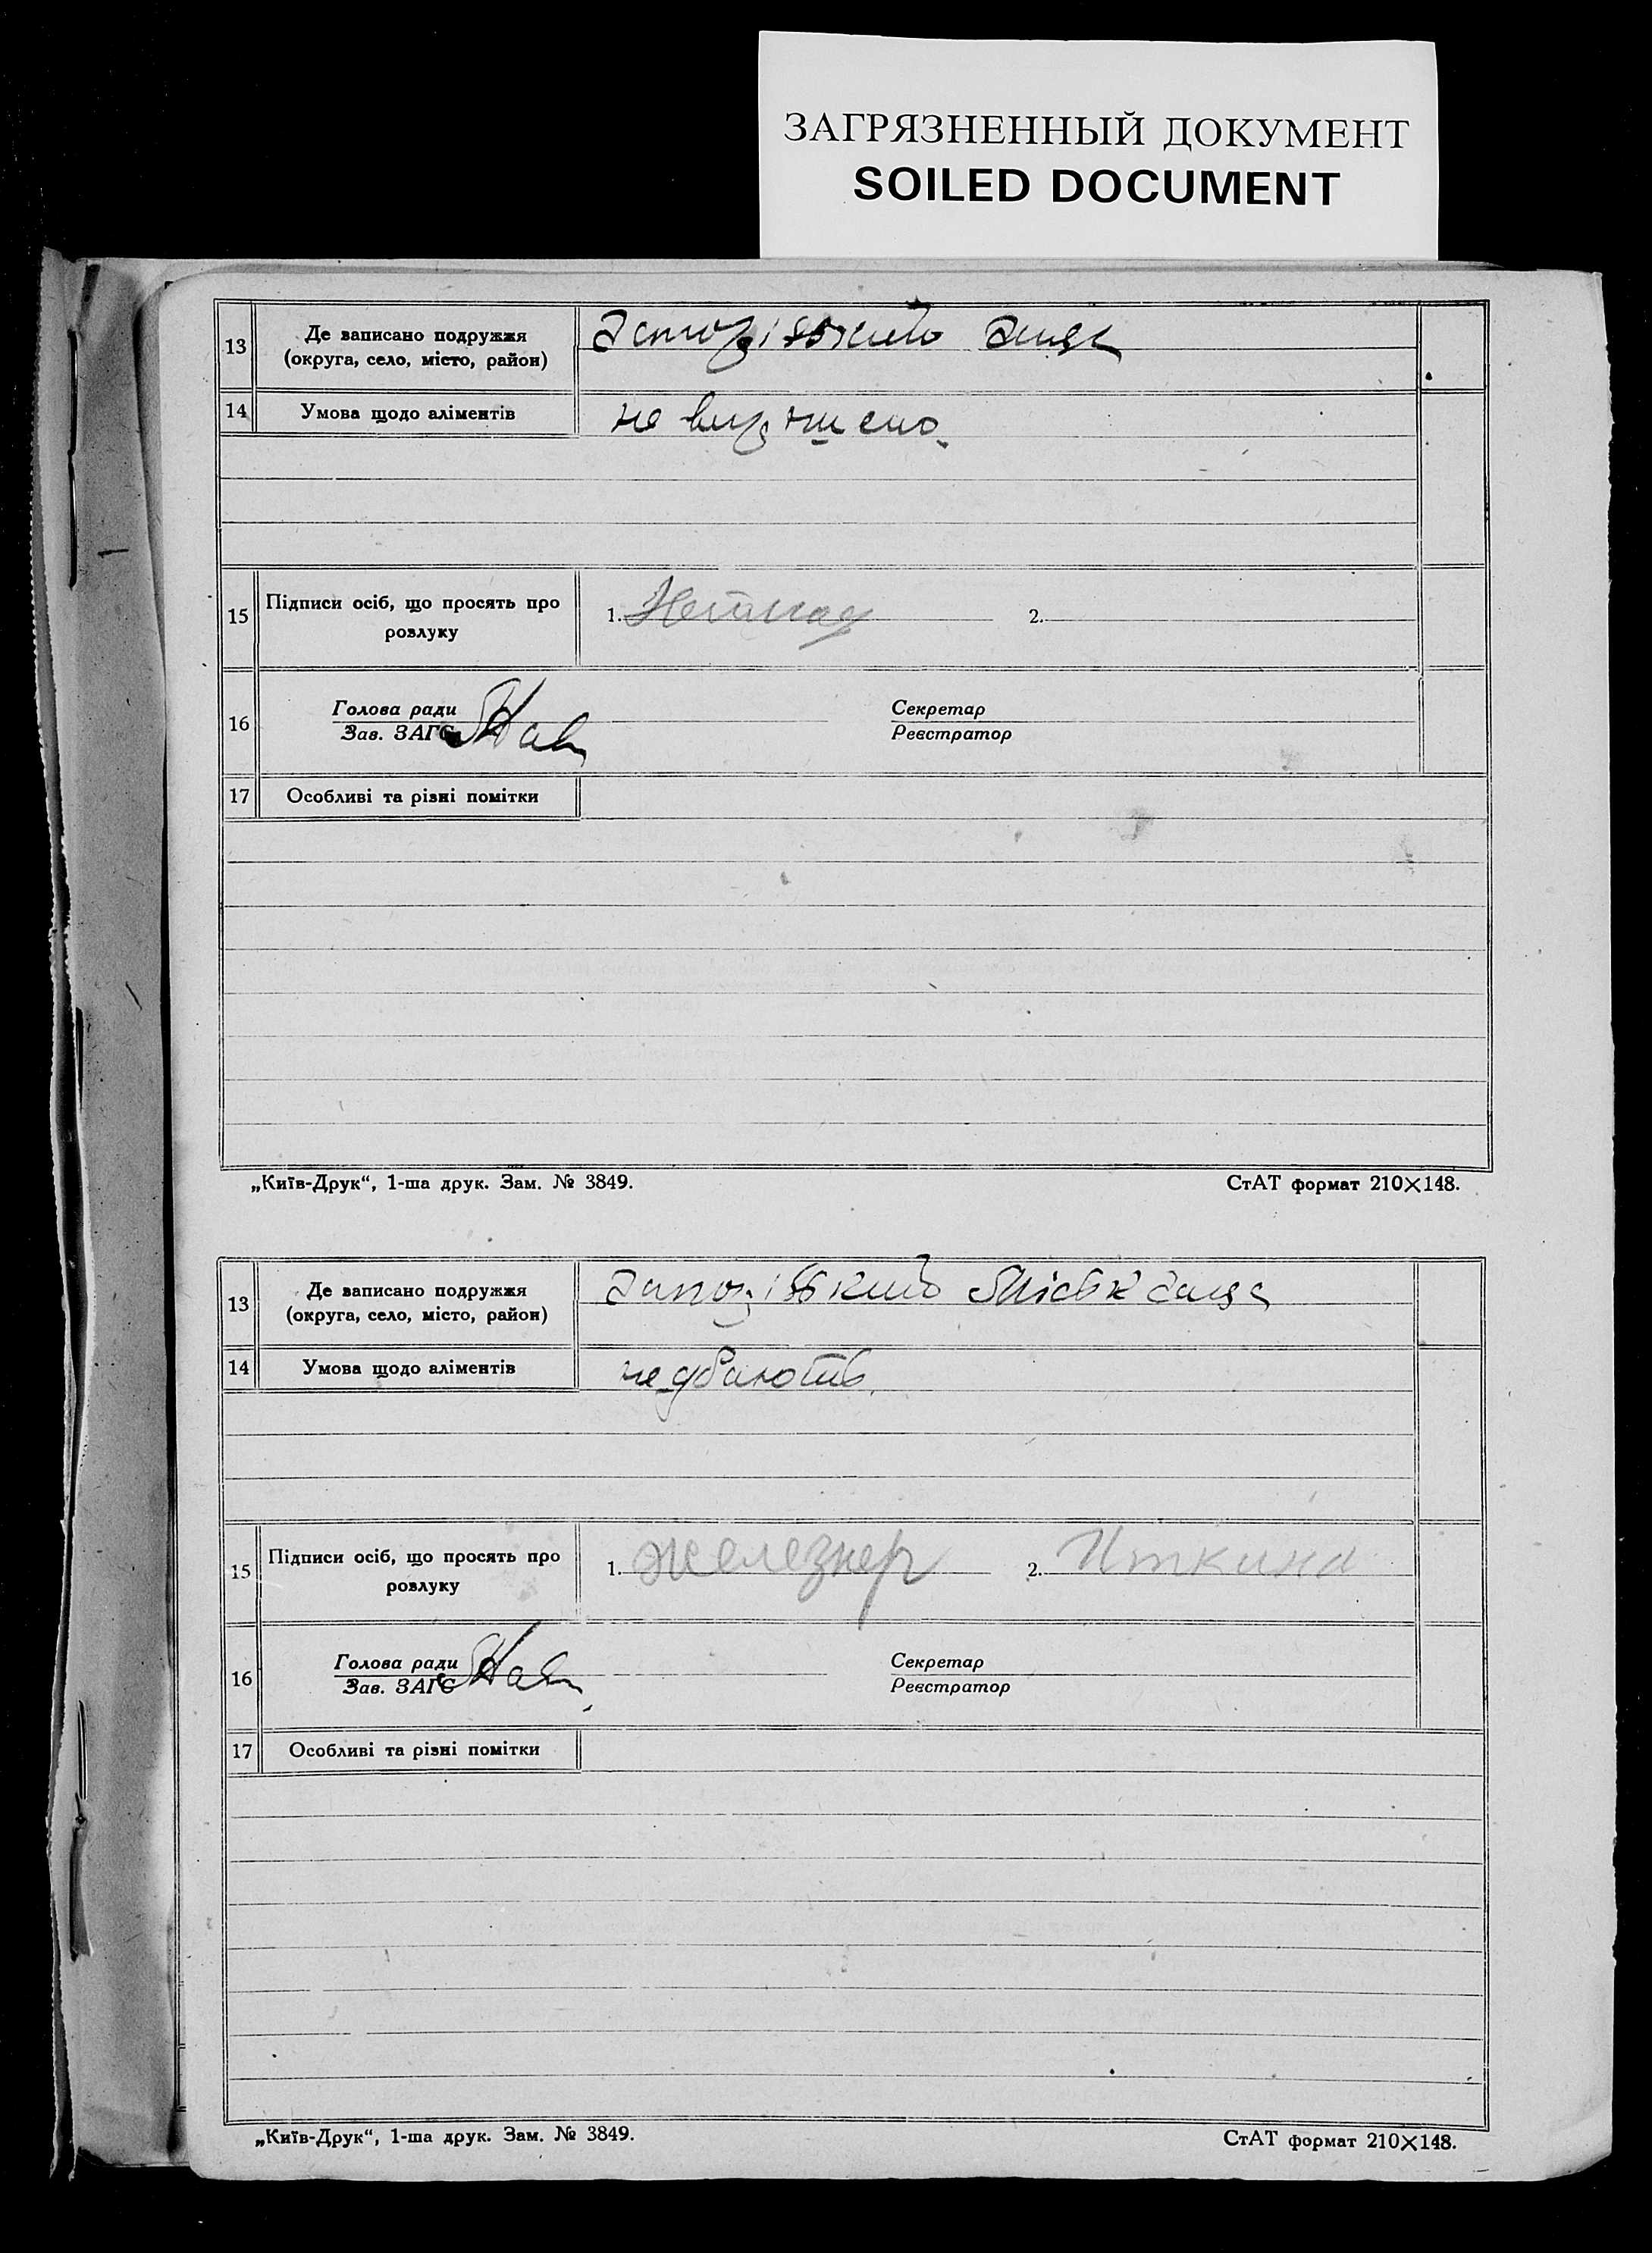 ЗАГРЯЗНЕННЫЙ ДОКУМЕНТ
SOILED DOCUMENT
13
Де записано подружжя
(округа, село, місто, район)
14
Умова щодо аліментів
не визначено.
15
Підписи осіб, що просять про
розлуку
1.
2.
16
Голова ради
Зав. ЗАГС
Секретар
Реєстратор
17
Особливі та різні помітки
„Київ-Друк“, 1-ша друк. Зам. № 3849.
СтАТ формат 210×148.
13
Де записано подружжя
(округа, село, місто, район)
14
Умова щодо аліментів
не дбають.
15
Підписи осіб, що просять про
розлуку
1. Железнер
2. Иткина
16
Голова ради
Зав. ЗАГС
Секретар
Реєстратор
17
Особливі та різні помітки
„Київ-Друк“, 1-ша друк. Зам. № 3849.
СтАТ формат 210×148.